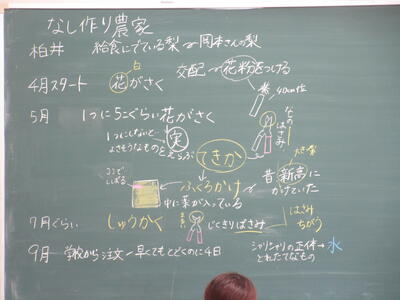 なし作り農家
柏井 給食にでている梨〜岡本さんの梨
白
4月スタート 花がさく 交配〜花粉をつける
40cm位
5月 1つに5こぐらい花がさく
なしの
はさみ
1つにしないと〜 実
よさそうなものとえらぶ
てきか
大きい
ここで
しばる
ふくろかけ 昔 新高に
かけていた
中に薬が入っている
7月ぐらい しゅうかく じくきりばさみ はさみ
ちがう
9月 学校から注文〜早くてもとどくのに4日
シャリシャリの正体→水
とれたてなもの